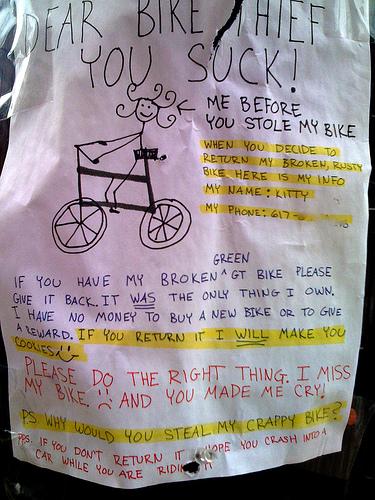 DEAR BIKE THIEF
YOU SUCK!
ME BEFORE
YOU STOLE MY BIKE
WHEN YOU DECIDE TO
RETURN MY BROKEN, RUSTY
BIKE, HERE IS MY INFO
MY NAME: KITTY
MY PHONE: 617-
GREEN
IF YOU HAVE MY BROKEN ^ GT BIKE PLEASE
GIVE IT BACK. IT WAS THE ONLY THING I OWN.
I HAVE NO MONEY TO BUY A NEW BIKE OR TO GIVE
A REWARD. IF YOU RETURN IT I WILL MAKE YOU
COOKIES
PLEASE DO THE RIGHT THING. I MISS
MY BIKE. AND YOU MADE ME CRY!
PS WHY WOULD YOU STEAL MY CRAPPY BIKE?
PPS. IF YOU DON'T RETURN IT I HOPE YOU CRASH INTO A
CAR WHILE YOU ARE RIDING IT